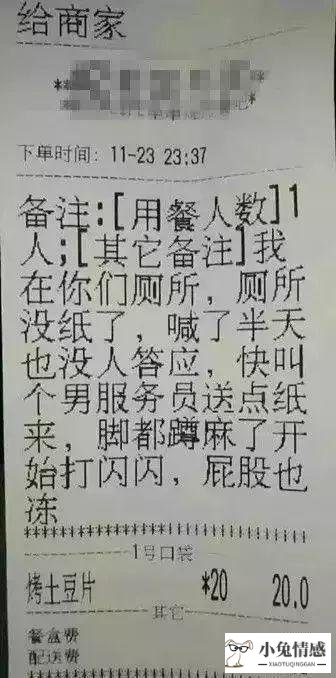 给商家
下单时间: 11-23 23:37
备注:[用餐人数]1
人;[其它备注]我
在你们厕所，厕所
没纸了，喊了半天
也没人答应，快叫
个男服务员送点纸
来，脚都蹲麻了开
始打闪闪，屁股也
冻
1号口袋
烤土豆片 *20 20.0
其它
餐盒费
配送费
小兔情感
XIAOTUQINGGAN